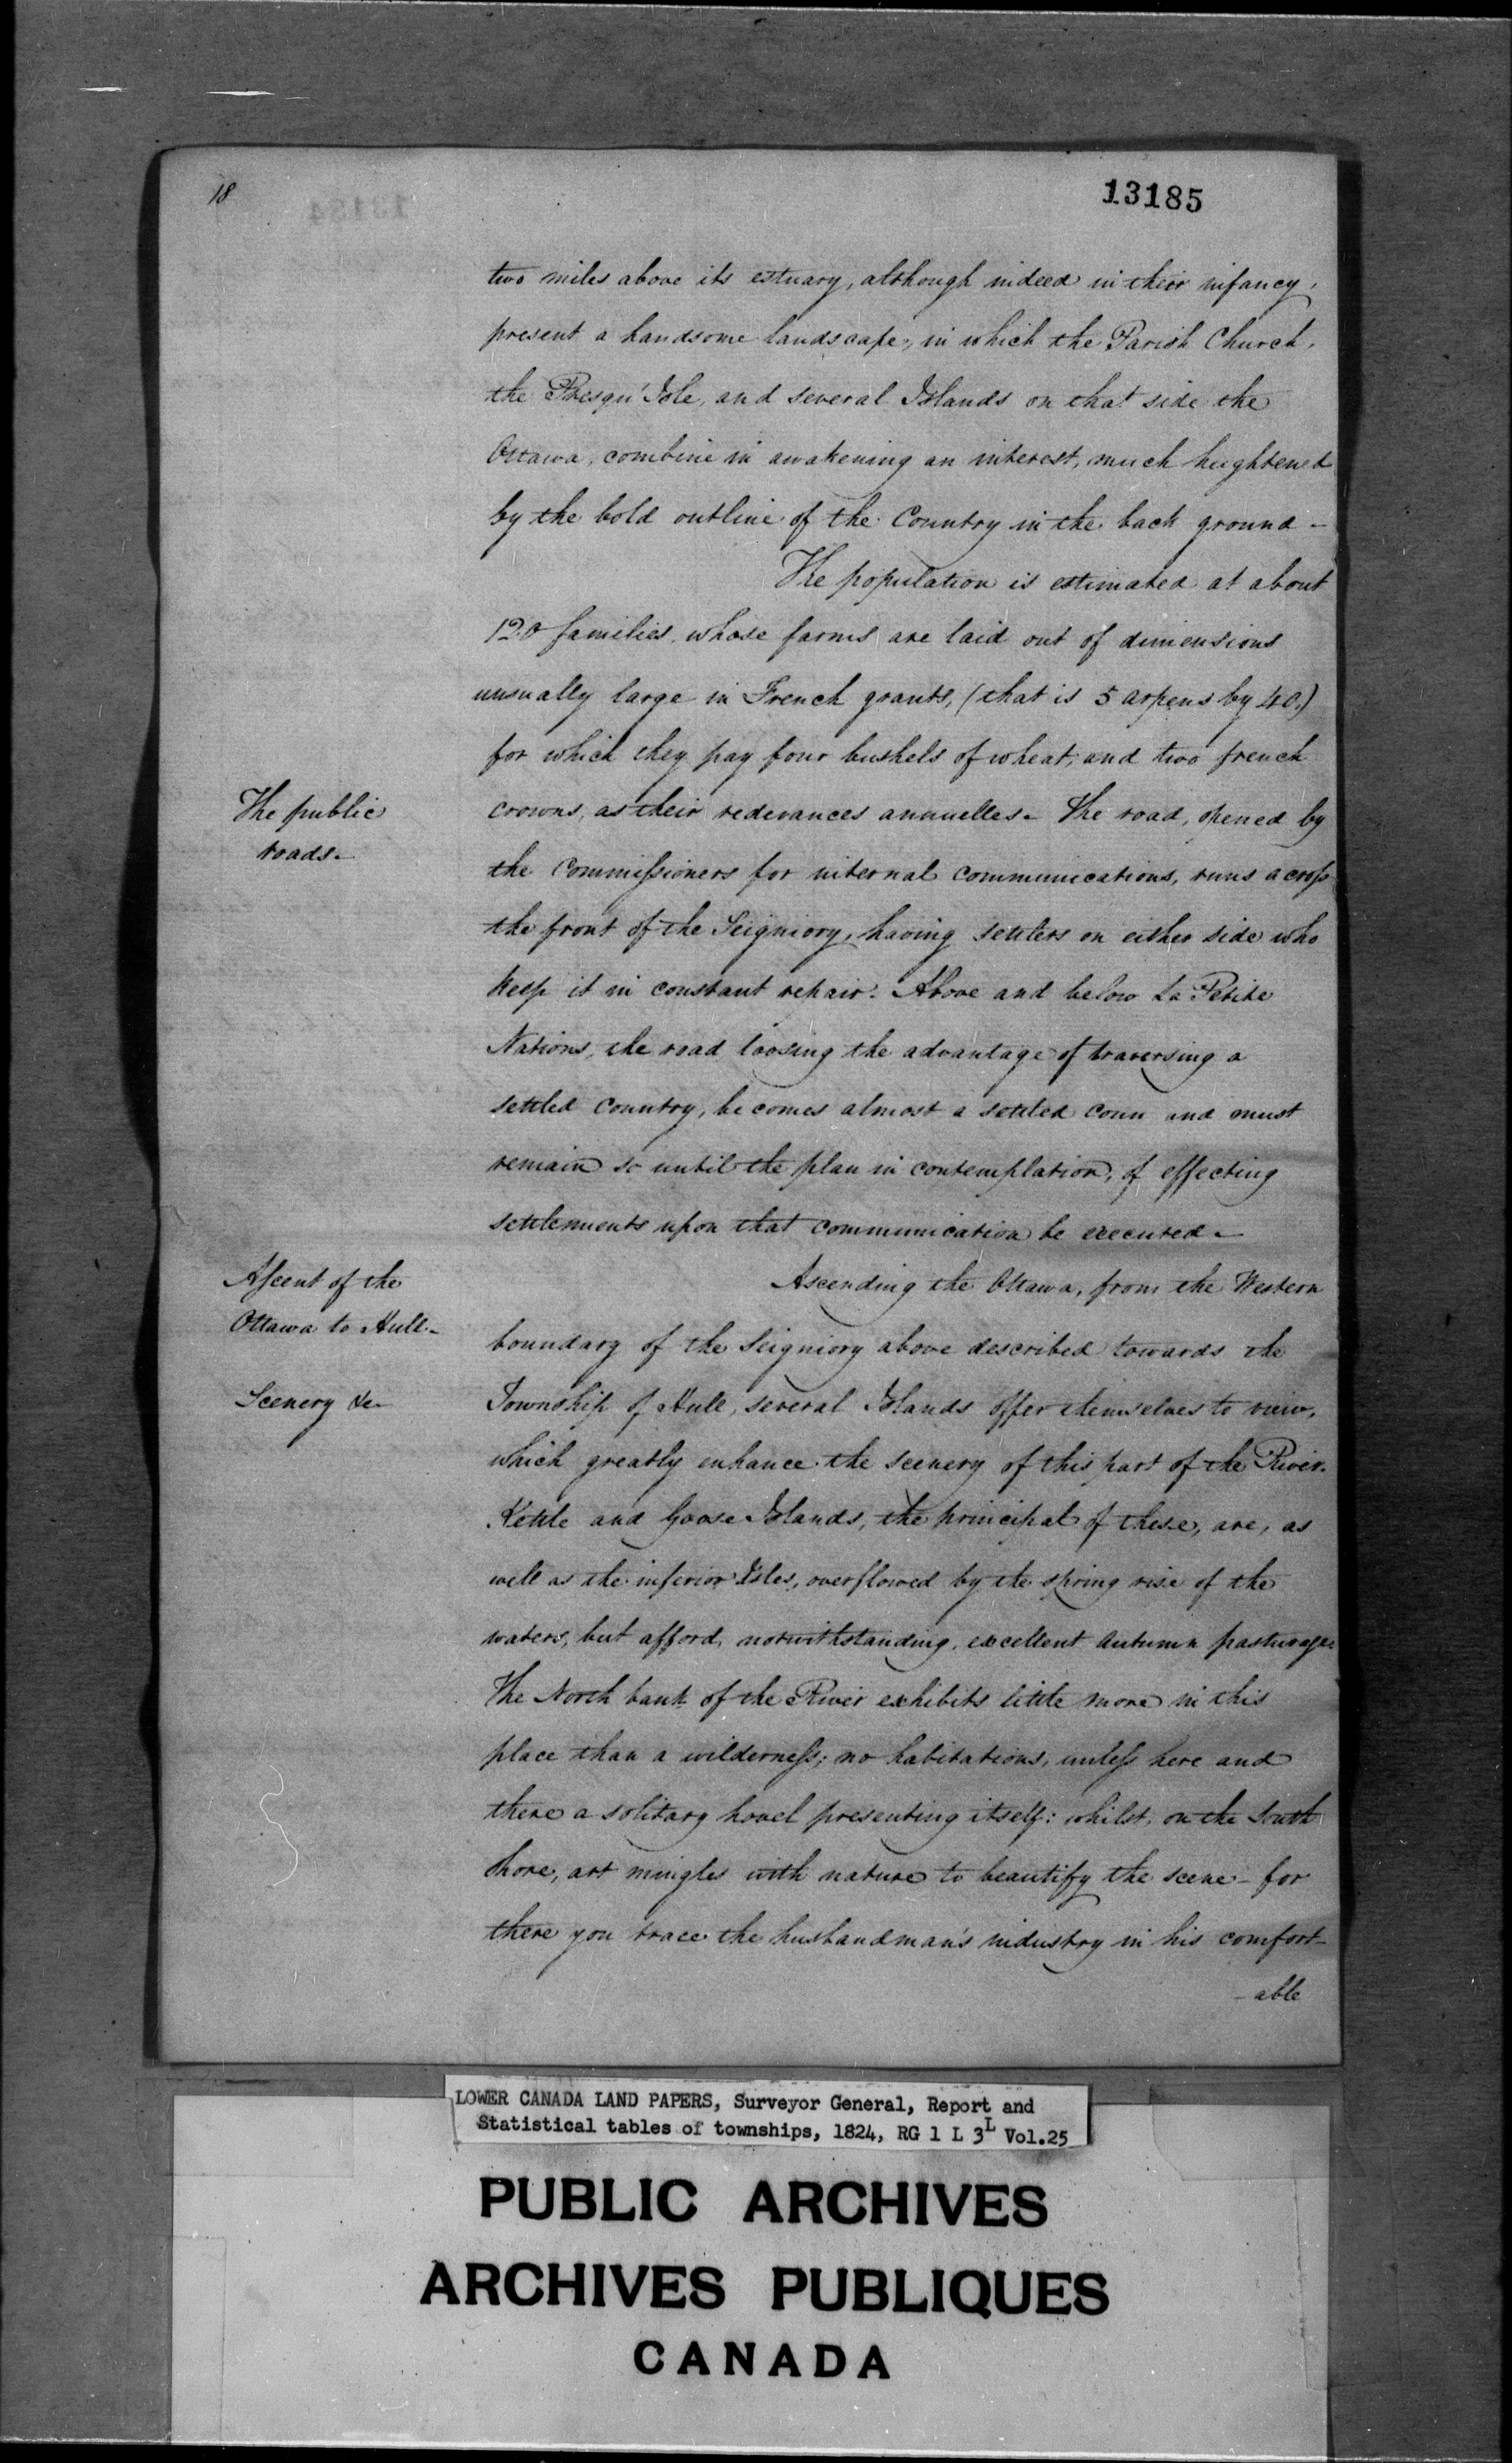 18
13185
two miles above its estuary, although indeed in their infancy,
present a handsome landscape, in which the Parish Church,
the Presqu'Isle, and several Islands on that side the
Ottawa, combine in awakening an interest, much heightened
by the bold outline of the Country in the back ground –
The population is estimated at about
120 families, whose farms are laid out of dimensions
unusually large in French grants, (that is 5 arpens by 40.)
for which they pay four bushels of wheat, and two french
The public
roads –
crowns, as their redevances annuelles – The road, opened by
the Commissioners for internal communications, runs across
the front of the Seigniory, having settlers on either side who
keep it in constant repair. Above and below La Petite
Nations, the road loosing the advantage of traversing a
settled Country, becomes almost a settled coun and must
remain so until the plan in contemplation, of effecting
settlements upon that communication be executed –
Ascent of the
Ottawa to Hull –
Scenery &c
Ascending the Ottawa, from the Western
boundary of the Seigniory above described towards the
Township of Hull, several Islands offer themselves to view,
which greatly enhance the scenery of this part of the River.
Kettle and Goose Islands, the principal of these, are, as
well as the inferior Isles, overflowed by the spring rise of the
waters, but afford, notwithstanding, excellent Autumn pasturage.
The North bank of the River exhibits little more in this
place than a wilderness; no habitations, unless here and
there a solitary hovel presenting itself: whilst, on the South
shore, art mingles with nature to beautify the scene – for
there you trace the husbandman's industry in his comfort-
- able
LOWER CANADA LAND PAPERS, Surveyor General, Report and
Statistical tables of townships, 1824, RG 1 L 3L Vol.25
PUBLIC ARCHIVES
ARCHIVES PUBLIQUES
CANADA